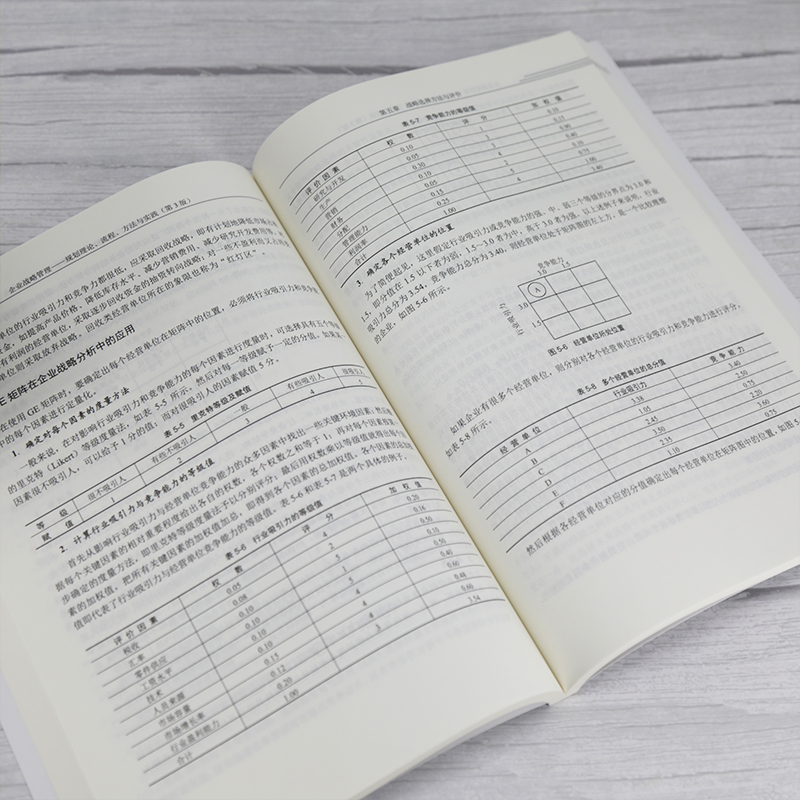 企业战略管理——规划理论、流程、方法与实践（第3版）
单位的行业吸引力和竞争力都很低，应采取回收战略，即有计划地降低市场占
金，如提高产品价格、降低库存水平、减少营销费用、减少研究开发费用等。
有利润的经营单位，采取逐步回收资金的抽资转向战略；对一些不盈利而又占用
单位则采取放弃战略。回收类经营单位所在的象限也称为“红灯区”。
E 矩阵在企业战略分析中的应用
在使用 GE 矩阵时，要确定出每个经营单位在矩阵中的位置，必须将行业吸引力和竞争
中的每个因素进行定量化。
1. 确定对每个因素的度量方法
一般来说，在对影响行业吸引力和竞争能力的每个因素进行度量时，可选择具有五个等级
的里克特（Likert）等级度量法，如表 5-5 所示。然后对每一等级赋予一定的分值，如果某一
因素很不吸引人，可以给予 1 分的值，而对很吸引人的因素赋值 5 分。
表 5-5 里克特等级及赋值
等 级 很不吸引人 有些不吸引人 一般 有些吸引人 很吸引人
赋 值 1 2 3 4 5
2. 计算行业吸引力与竞争能力的等级值
首先从影响行业吸引力与经营单位竞争能力的众多因素中找出一些关键环境因素；然后根
据每个关键因素的相对重要程度给出各自的权数，各个权数之和等于 1；再对每个因素按第一
步确定的度量方法，即里克特等级度量法予以分别评分；最后用权数乘以等级值就得出每个因
素的加权值，把所有关键因素的加权值加总，即得到各个因素的总加权值。各个因素的总加权
值即代表了行业吸引力与经营单位竞争能力的等级值，表 5-6 和表 5-7 是两个具体的例子。
表 5-6 行业吸引力的等级值
评 价 因 素 权 数 评 分 加 权 值
税收 0.05 4 0.20
汇率 0.08 2 0.16
零件供应 0.10 5 0.50
工资水平 0.10 1 0.10
技术 0.10 5 0.50
人员来源 0.10 4 0.40
市场容量 0.15 4 0.60
市场增长率 0.12 4 0.48
行业盈利能力 0.20 3 0.60
合计 1.00 3.54
第五章 战略选择方法与评价
表 5-7 竞争能力的等级值
评 价 因 素 权 数 评 分 加 权 值
研究与开发 0.10 1 0.10
生产 0.05
营销 0.30
财务 0.10
分配 0.05
管理能力 0.15 5 0.75
利润率 0.25 4 1.00
合计 1.00 3.40
3. 确定各个经营单位的位置
为了简便起见，这里假定行业吸引力或竞争能力的强、中、弱三个等级的分界点为 3.0 和
1.5，即分值在 1.5 以下者为弱，1.5～3.0 者为中，高于 3.0 者为强。以上述例子来说明，行业
吸引力总分为 3.54，竞争能力总分为 3.40，则经营单位处于矩阵图的左上方，是一个比较理想
的企业，如图 5-6 所示。
竞争能力
3.0 1.5
A
行业吸引力
3.0
1.5
图 5-6 经营单位所处位置
如果企业有很多个经营单位，则分别对各个经营单位的行业吸引力和竞争能力进行评分，
如表5-8所示。
表 5-8 多个经营单位的总分值
经 营 单 位 行业吸引力 竞 争 能 力
A 3.38 3.40
B 1.05 2.50
C 2.45 0.75
D 3.60 2.20
E 2.35 3.60
F 1.10 0.75
然后根据各经营单位对应的分值确定出每个经营单位在矩阵图中的位置，如图 5